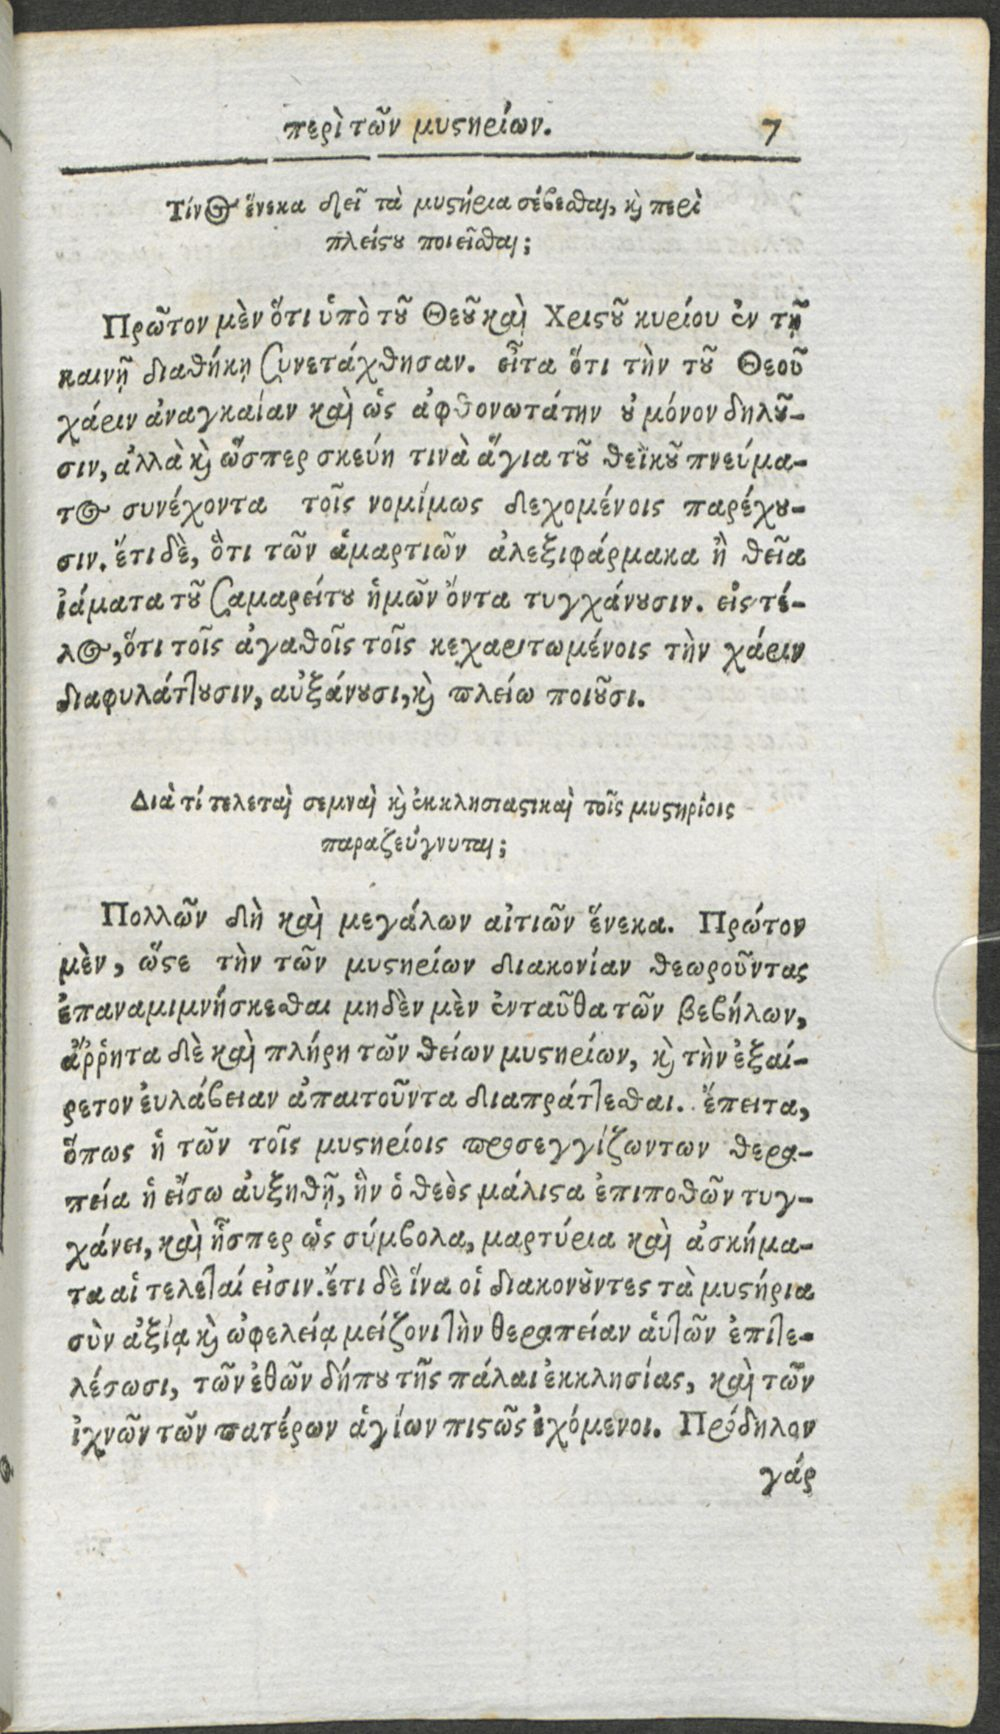 περὶ τῶν μυϛηρίων. 7
Τίνος ἕνεκα δεῖ τὰ μυϛήρια σέβεσθαι, κὶ περὶ
πλείϛου ποιεῖσθαι;
Πρῶτον μὲν ὅτι ὑπὸ τοῦ Θεοῦ καὶ Χριϛοῦ κυρίου ἐν τῇ
καινῇ διαθήκῃ συνετάχθησαν. εἶτα ὅτι τὴν τοῦ Θεοῦ
χάριν ἀναγκαίαν καὶ ὡς ἀφθονωτάτην οὐ μόνον δηλοῦ-
σιν, ἀλλὰ κὶ ὥσπερ σκεύη τινὰ ἅγια τοῦ θεϊκοῦ πνεύμα-
τος συνέχοντα τοῖς νομίμως δεχομένοις παρέχου-
σιν. ἔτι δὲ, ὅτι τῶν ἁμαρτιῶν ἀλεξιφάρμακα ἢ θεῖα
ἰάματα τοῦ Σαμαρείτου ἡμῶν ὄντα τυγχάνουσιν. εἰς τέ-
λος, ὅτι τοῖς ἀγαθοῖς τοῖς κεχαριτωμένοις τὴν χάριν
διαφυλάττουσιν, αὐξάνουσι, κὶ πλείω ποιοῦσι.
Διὰ τί τελεταὶ σεμναὶ κὶ ἐκκλησιαϛικαὶ τοῖς μυϛηρίοις
παραζεύγνυται;
Πολλῶν δὴ καὶ μεγάλων αἰτιῶν ἕνεκα. Πρώτον
μὲν, ὥϛε τὴν τῶν μυϛηρίων διακονίαν θεωροῦντας
ἐπαναμιμνήσκεσθαι μηδὲν μὲν ἐνταῦθα τῶν βεβήλων,
ἄῤῥητα δὲ καὶ πλήρη τῶν θείων μυϛηρίων, κὶ τὴν ἐξαί-
ρετον ἐυλάβειαν ἀπαιτοῦντα διαπράττεσθαι. ἔπειτα,
ὅπως ἡ τῶν τοῖς μυϛηρίοις προσεγγίζωντων θερα-
πεία ἡ εἴσω ἀυξηθῇ, ἣν ὁ θεὸς μάλιϛα ἐπιποθῶν τυγ-
χάνει, καὶ ἧσπερ ὡς σύμβολα, μαρτύρια καὶ ἀσκήμα-
τα αἱ τελεταί εἰσιν. ἔτι δὲ ἵνα οἱ διακονοῦντες τὰ μυϛήρια
σὺν ἀξίᾳ κὶ ὠφελείᾳ μείζονι τὴν θεραπείαν ἁυτῶν ἐπιτε-
λέσωσι, τῶν ἐθῶν δήπου τῆς πάλαι ἐκκλησίας, καὶ τῶν
ἰχνῶν τῶν πατέρων ἁγίων πιϛῶς ἐχόμενοι. Πρόδηλον
γάρ